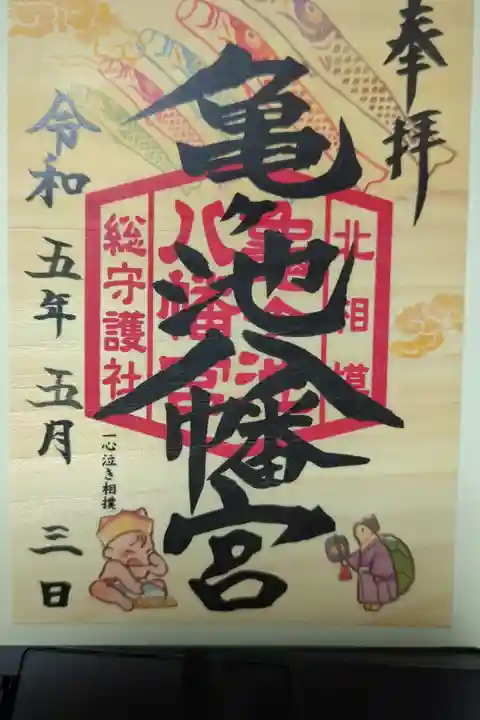 奉拝
北相模
亀ヶ池八幡宮
亀ヶ池
八幡宮
総守護社
令和五年五月三日
一心泣き相撲